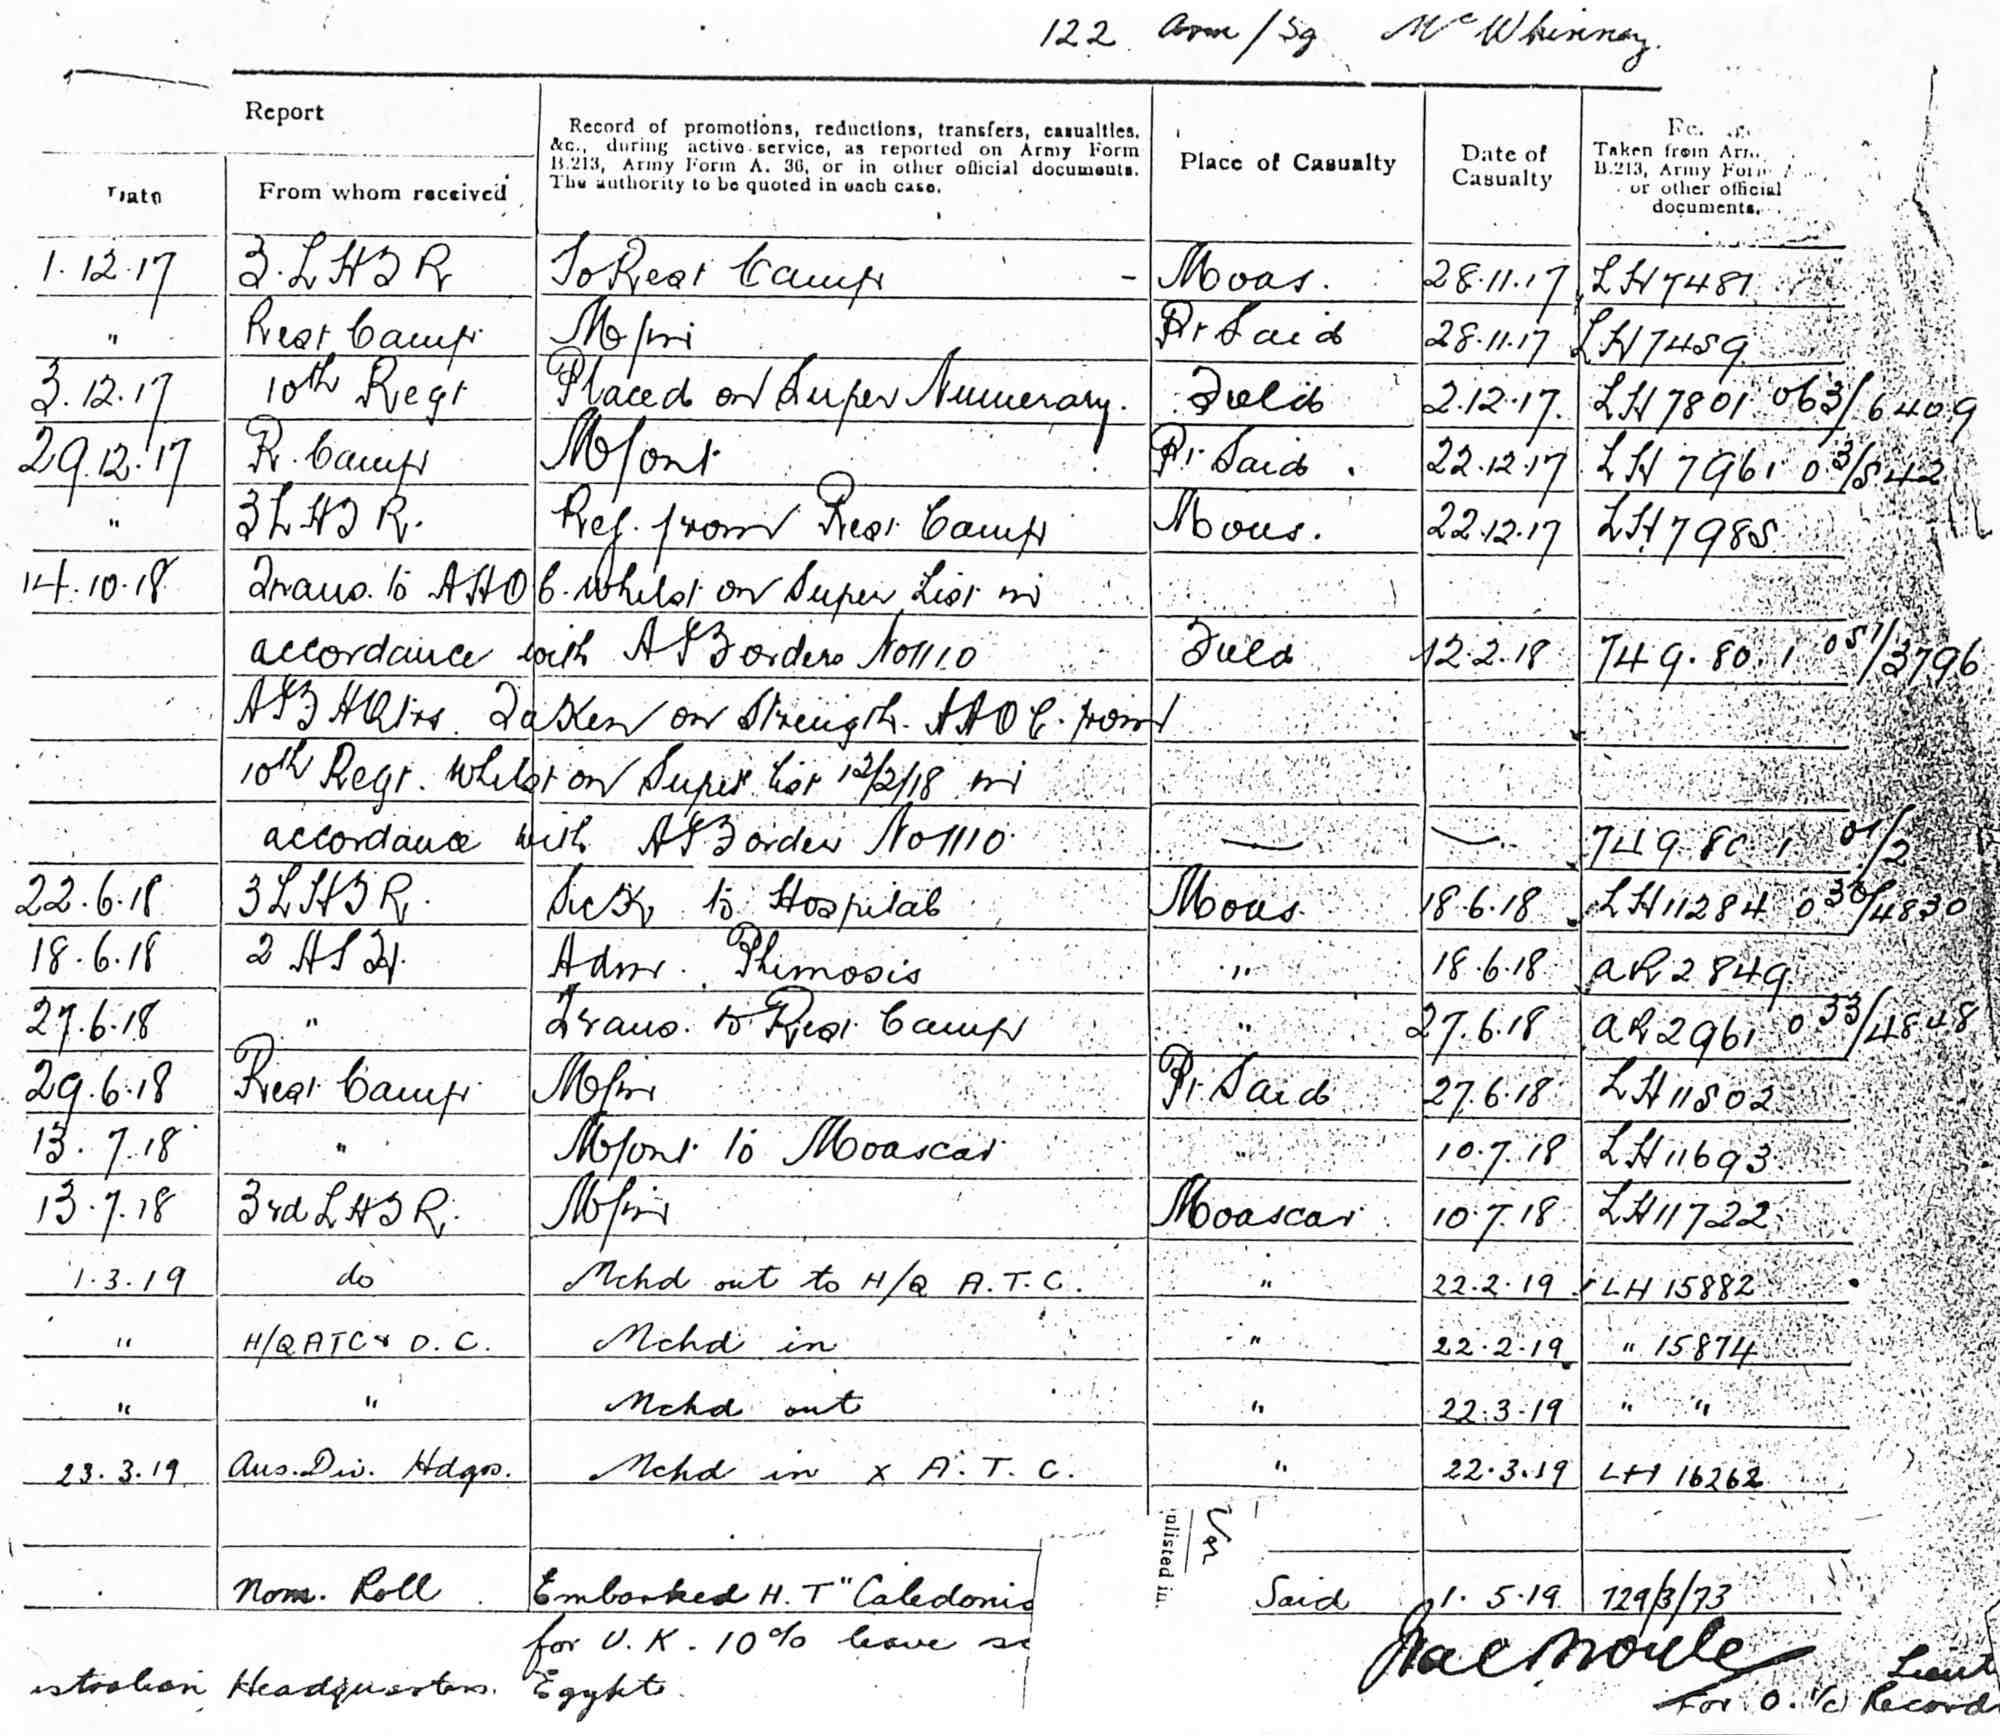 122 Arm/Sg McWhinney.
Report
Record of promotions, reductions, transfers, casualties, &c., during active service, as reported on Army Form B.213, Army Form A. 36, or in other official documents. The authority to be quoted in each case.
Place of Casualty
Date of Casualty
Taken from Arm
B.213, Army Form
or other official
documents.
Date From whom received
1.12.17 3.LHTR To Rest Camp - Moas. 28.11.17 LH7481
" Rest Camp M/in Pt Said 28.11.17 LH7459
3.12.17 10th Regt Placed on Super Numerary. Field 2.12.17. LH7801 063/6409
29.12.17 R. Camp M/out Pt Said. 22.12.17 LH7961 03/542
" 3LHTR. Rej. from Rest Camp Moas. 22.12.17 LH7985
14.10.18 Trans. to AAOC. whilst on Super List in
accordance with AIF orders No 1110 Field 12.2.18 749.80.1 051/3796
AIF HQtrs. Taken on Strength. AAOC. from
10th Regt. whilst on Super list 12/2/18 in
accordance with AIF order No 1110 — — 749.80.1 01/2
22.6.18 3LHTR. Sick to Hospital Moas. 18.6.18 LH11284 030/4830
18.6.18 2 ASH. Adm. Phimosis " 18.6.18 AR2849
27.6.18 " Trans. to Rest Camp " 27.6.18 AR2961 033/4848
29.6.18 Rest Camp M/in Pt Said 27.6.18 LH11502
13.7.18 " M/out to Moascar " 10.7.18 LH11693
13.7.18 3rd LHTR. M/in Moascar 10.7.18 LH11722
1.3.19 do Mchd out to H/Q A.T.C. " 22.2.19 LH 15882
" H/Q ATC & D.C. Mchd in " 22.2.19 " 15874
" " Mchd out " 22.3.19 " "
23.3.19 Aus. Div. Hdqrs. Mchd in x A.T.C. " 22.3.19 LH 16262
nlisted in
Nom. Roll Embarked H.T "Caledonia Said 1.5.19 129/3/73
for U.K. 10% leave
stralian Headquarters. Egypt.
Lieut
For O. i/c Records